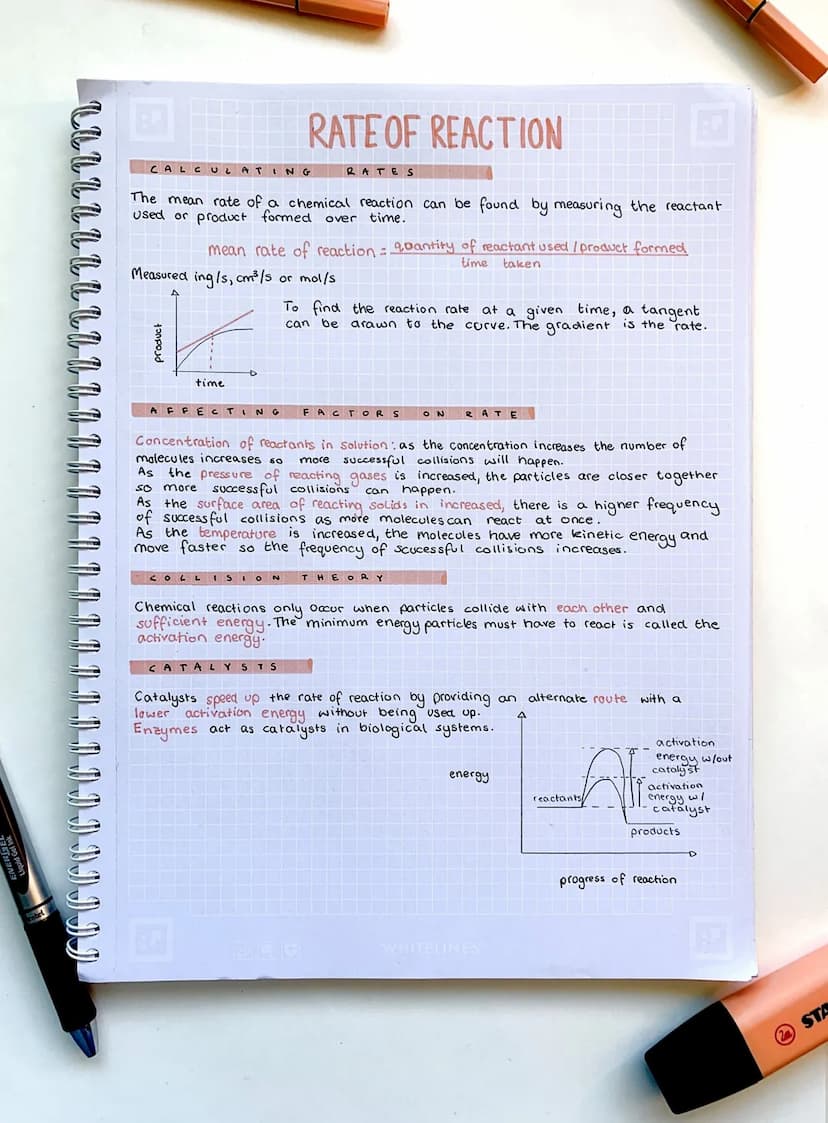 RATE OF REACTION
CALCULATING RATES
The mean rate of a chemical reaction can be found by measuring the reactant
used or product formed over time.
mean rate of reaction = quantity of reactant used / product formed
time taken
Measured in g/s, cm³/s or mol/s
To find the reaction rate at a given time, a tangent
can be drawn to the curve. The gradient is the rate.
product
time
AFFECTING FACTORS ON RATE
Concentration of reactants in solution: as the concentration increases the number of
molecules increases so more successful collisions will happen.
As the pressure of reacting gases is increased, the particles are closer together
so more successful collisions can happen.
As the surface area of reacting solids in increased, there is a higher frequency
of successful collisions as more molecules can react at once.
As the temperature is increased, the molecules have more kinetic energy and
move faster so the frequency of scucessful collisions increases.
COLLISION THEORY
Chemical reactions only occur when particles collide with each other and
sufficient energy. The minimum energy particles must have to react is called the
activation energy.
CATALYSTS
Catalysts speed up the rate of reaction by providing an alternate route with a
lower activation energy without being used up.
Enzymes act as catalysts in biological systems.
energy
activation
energy w/out
catalyst
activation
energy w/
catalyst
reactants
products
progress of reaction
WHITELINES
ENERGEL
Liquid Gel Ink
STA